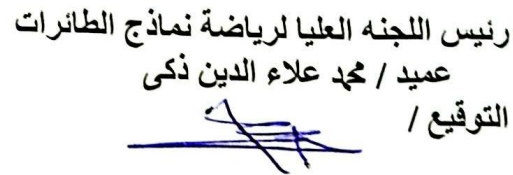 رئيس اللجنه العليا لرياضة نماذج الطائرات
عميد / محمد علاء الدين ذكى
التوقيع /